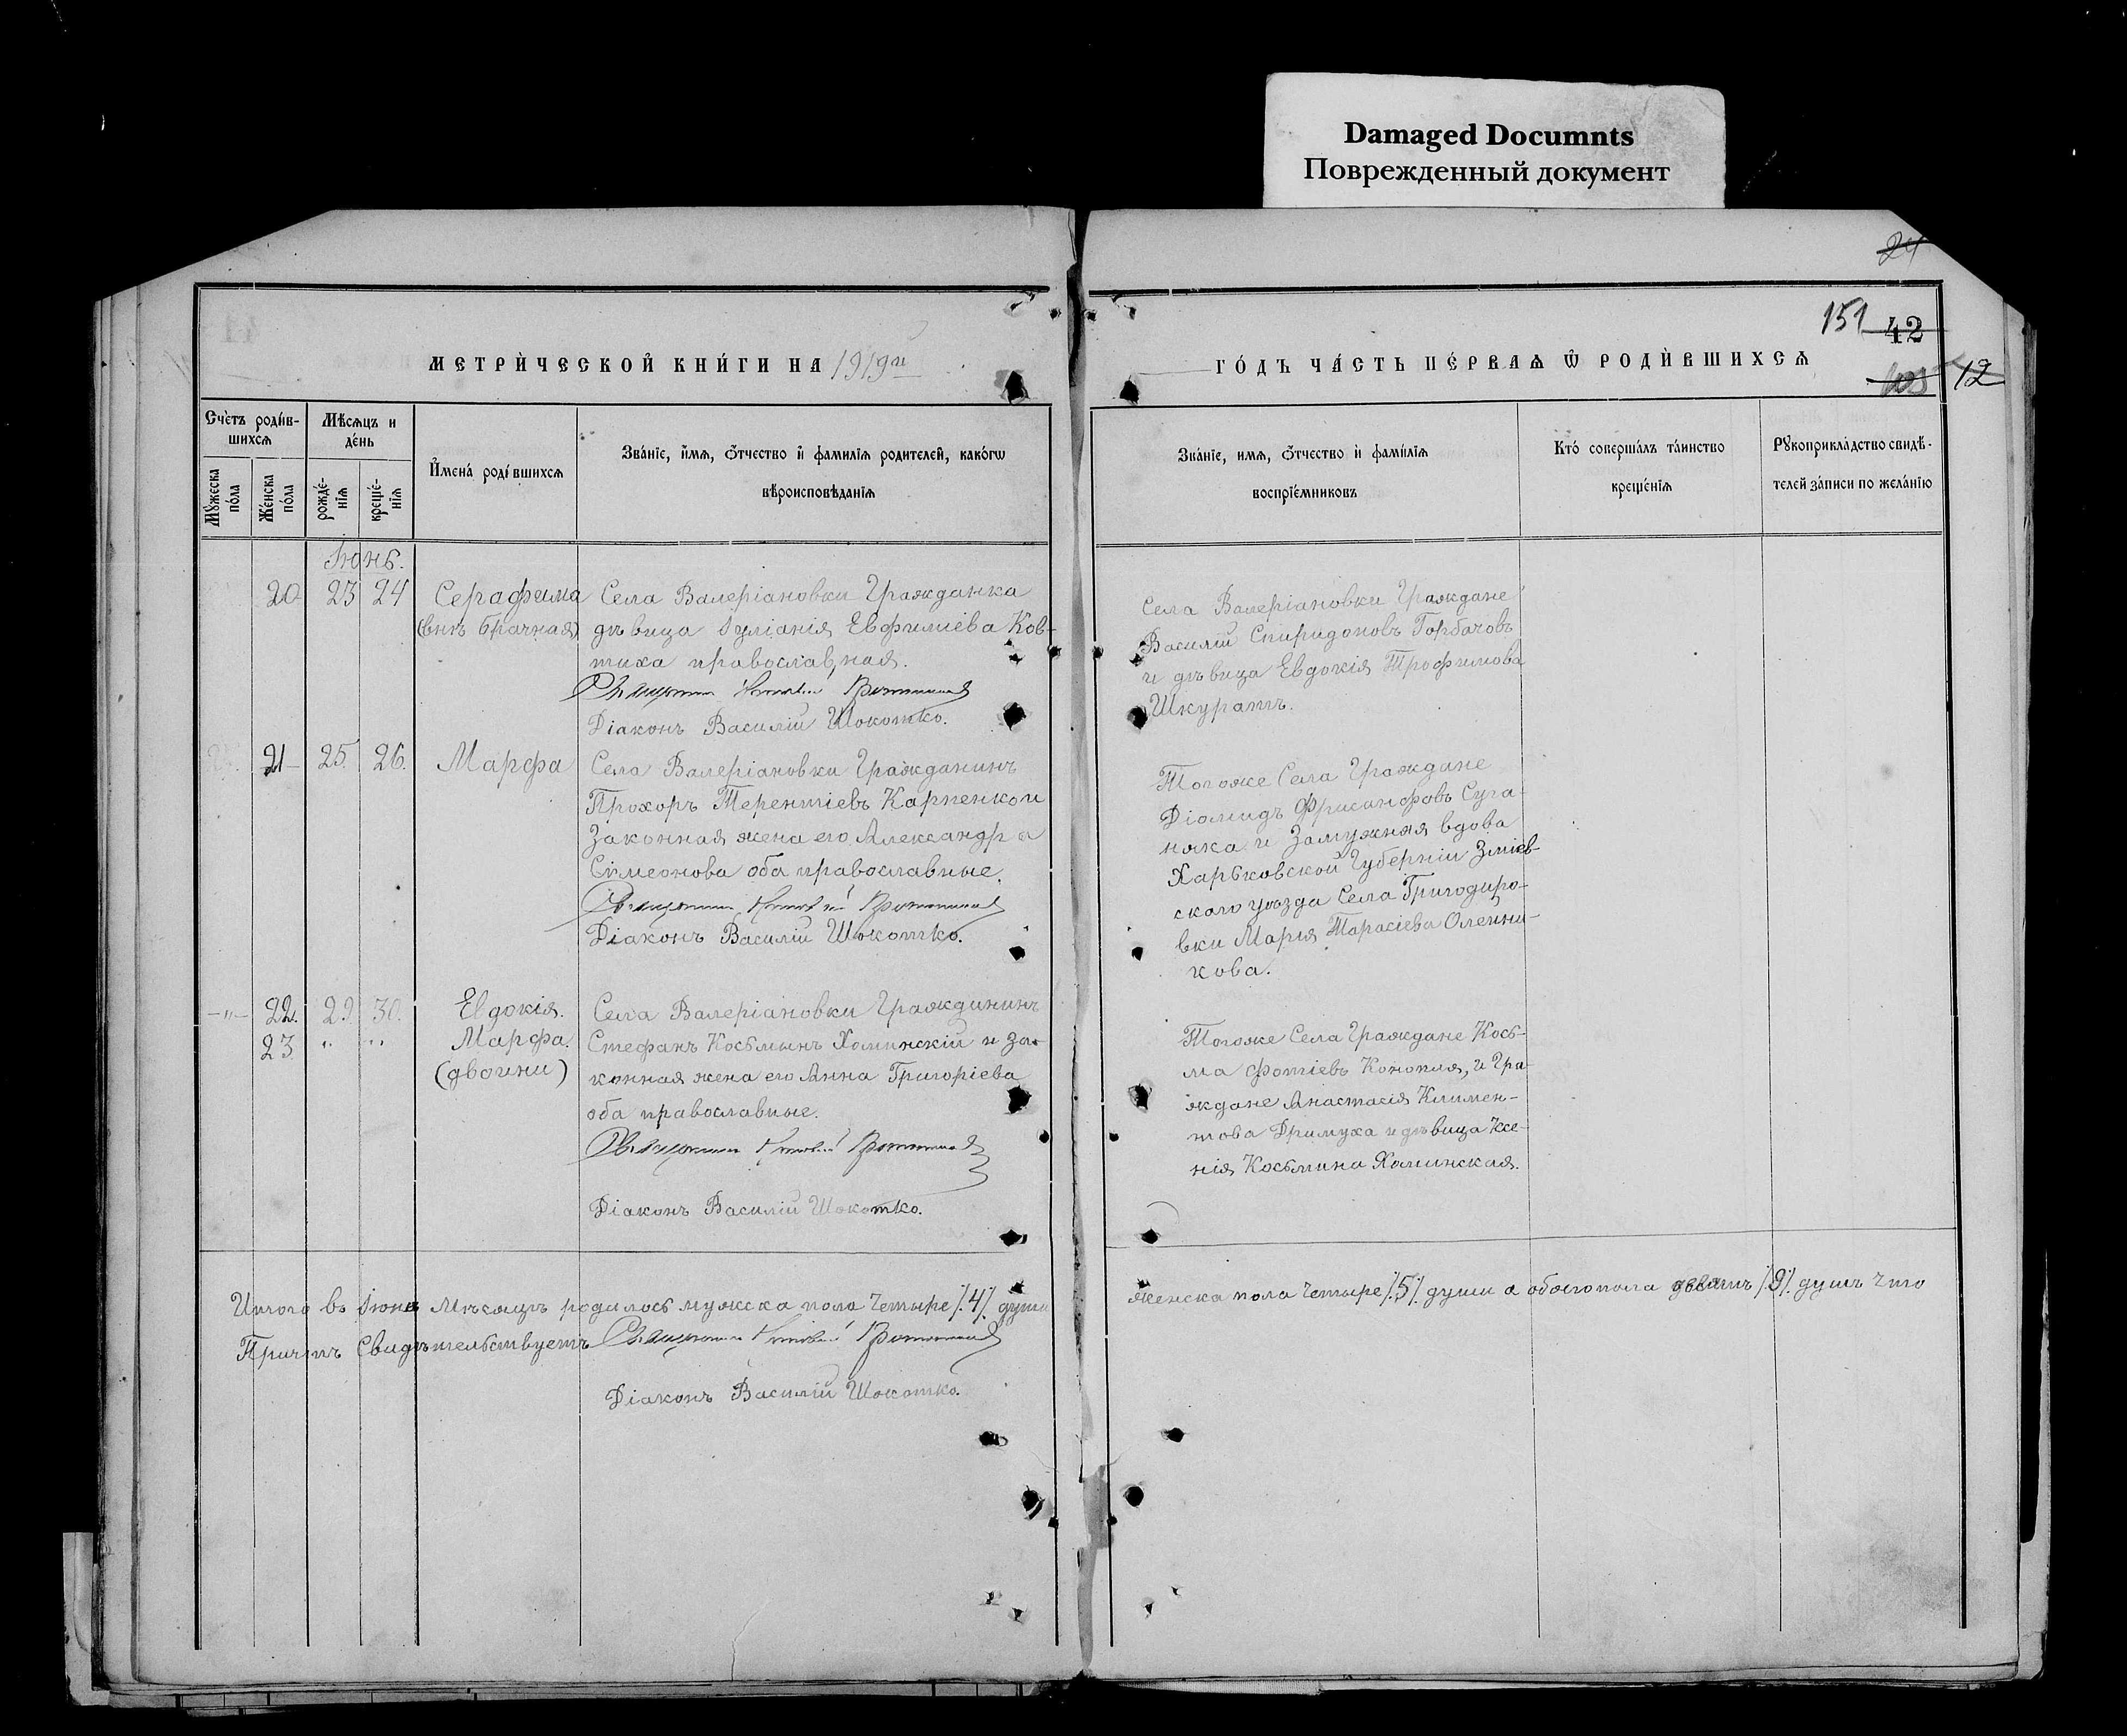 Damaged Documnts
Поврежденный документ
24
151 42
105 12
МЕТРИ́ЧЕСКОЙ КНИ́ГИ НА 1919й
ГО́ДЪ ЧА́СТЬ ПЕ́РВАѦ Ѿ РОДИ́ВШИХСѦ
Сче́тъ роди́в-
шихсѧ
Мѣ́сѧцъ и
де́нь
Мꙋ́жеска
по́ла
Же́нска
по́ла
рожде́-
нїѧ
креще́-
нїѧ
И́мена́ роди́вшихсѧ
Зва́нїе, и́мѧ, ѻ́тчество и҆ фами́лїѧ роди́телей, како́гѡ
вѣроисповѣ́данїѧ
Зва́нїе, имѧ, ѻ́тчество и҆ фами́лїѧ
воспрїе́мниковъ
Кто̀ соверша́лъ та́инство
креще́нїѧ
Рꙋкоприкла́дство свидѣ́-
телей за́писи по жела́нїю
Іюнь.
20 23 24 Серафима Села Валеріановки Гражданка
(внѣ брачная) дѣвица Іуліанія Евфиміева Ков-
тиха православная.
Священникъ
Діаконъ Василій Шокотко.
Села Валеріановки Граждане
Василій Спиридоновъ Горбачовъ
и дѣвица Евдокія Трофимова
Шкуратъ.
21 25. 26. Марфа Села Валеріановки Гражданинъ
Прохоръ Терентіевъ Карпенко и
Законная жена его Александра
Сімеонова оба православные.
Священникъ
Діаконъ Василій Шокотко.
Тогоже Села Граждане
Діомидъ Фрисанфовъ Суга-
няка и Замужняя вдова
Харьковской Губерніи Зміев-
ского уѣзда Села Григодиро-
вки Марія Тарасіева Олейни-
кова.
-"- 22. 29. 30. Евдокія. Села Валеріановки Гражданинъ
23 " " Марфа. Стефанъ Косьминъ Хоминскій и за-
(двойни) конная жена его Анна Григоріева
оба православные.
Священникъ
Діаконъ Василій Шокотко.
Тогоже Села Граждане Кось-
ма Фотіевъ Конопля, и Гра-
ждане Анастасія Климен-
това Дримуха и дѣвица Ксе-
нія Косьмина Хоминская.
Итого въ Іюнѣ Мѣсяцѣ родилось мужска пола Четыре /.4/. души
женска пола Четыре /.5/. души а обоего пола девять /.9/. душъ Что
Причтъ Свидѣтельствуетъ Священникъ
Діаконъ Василій Шокотко.